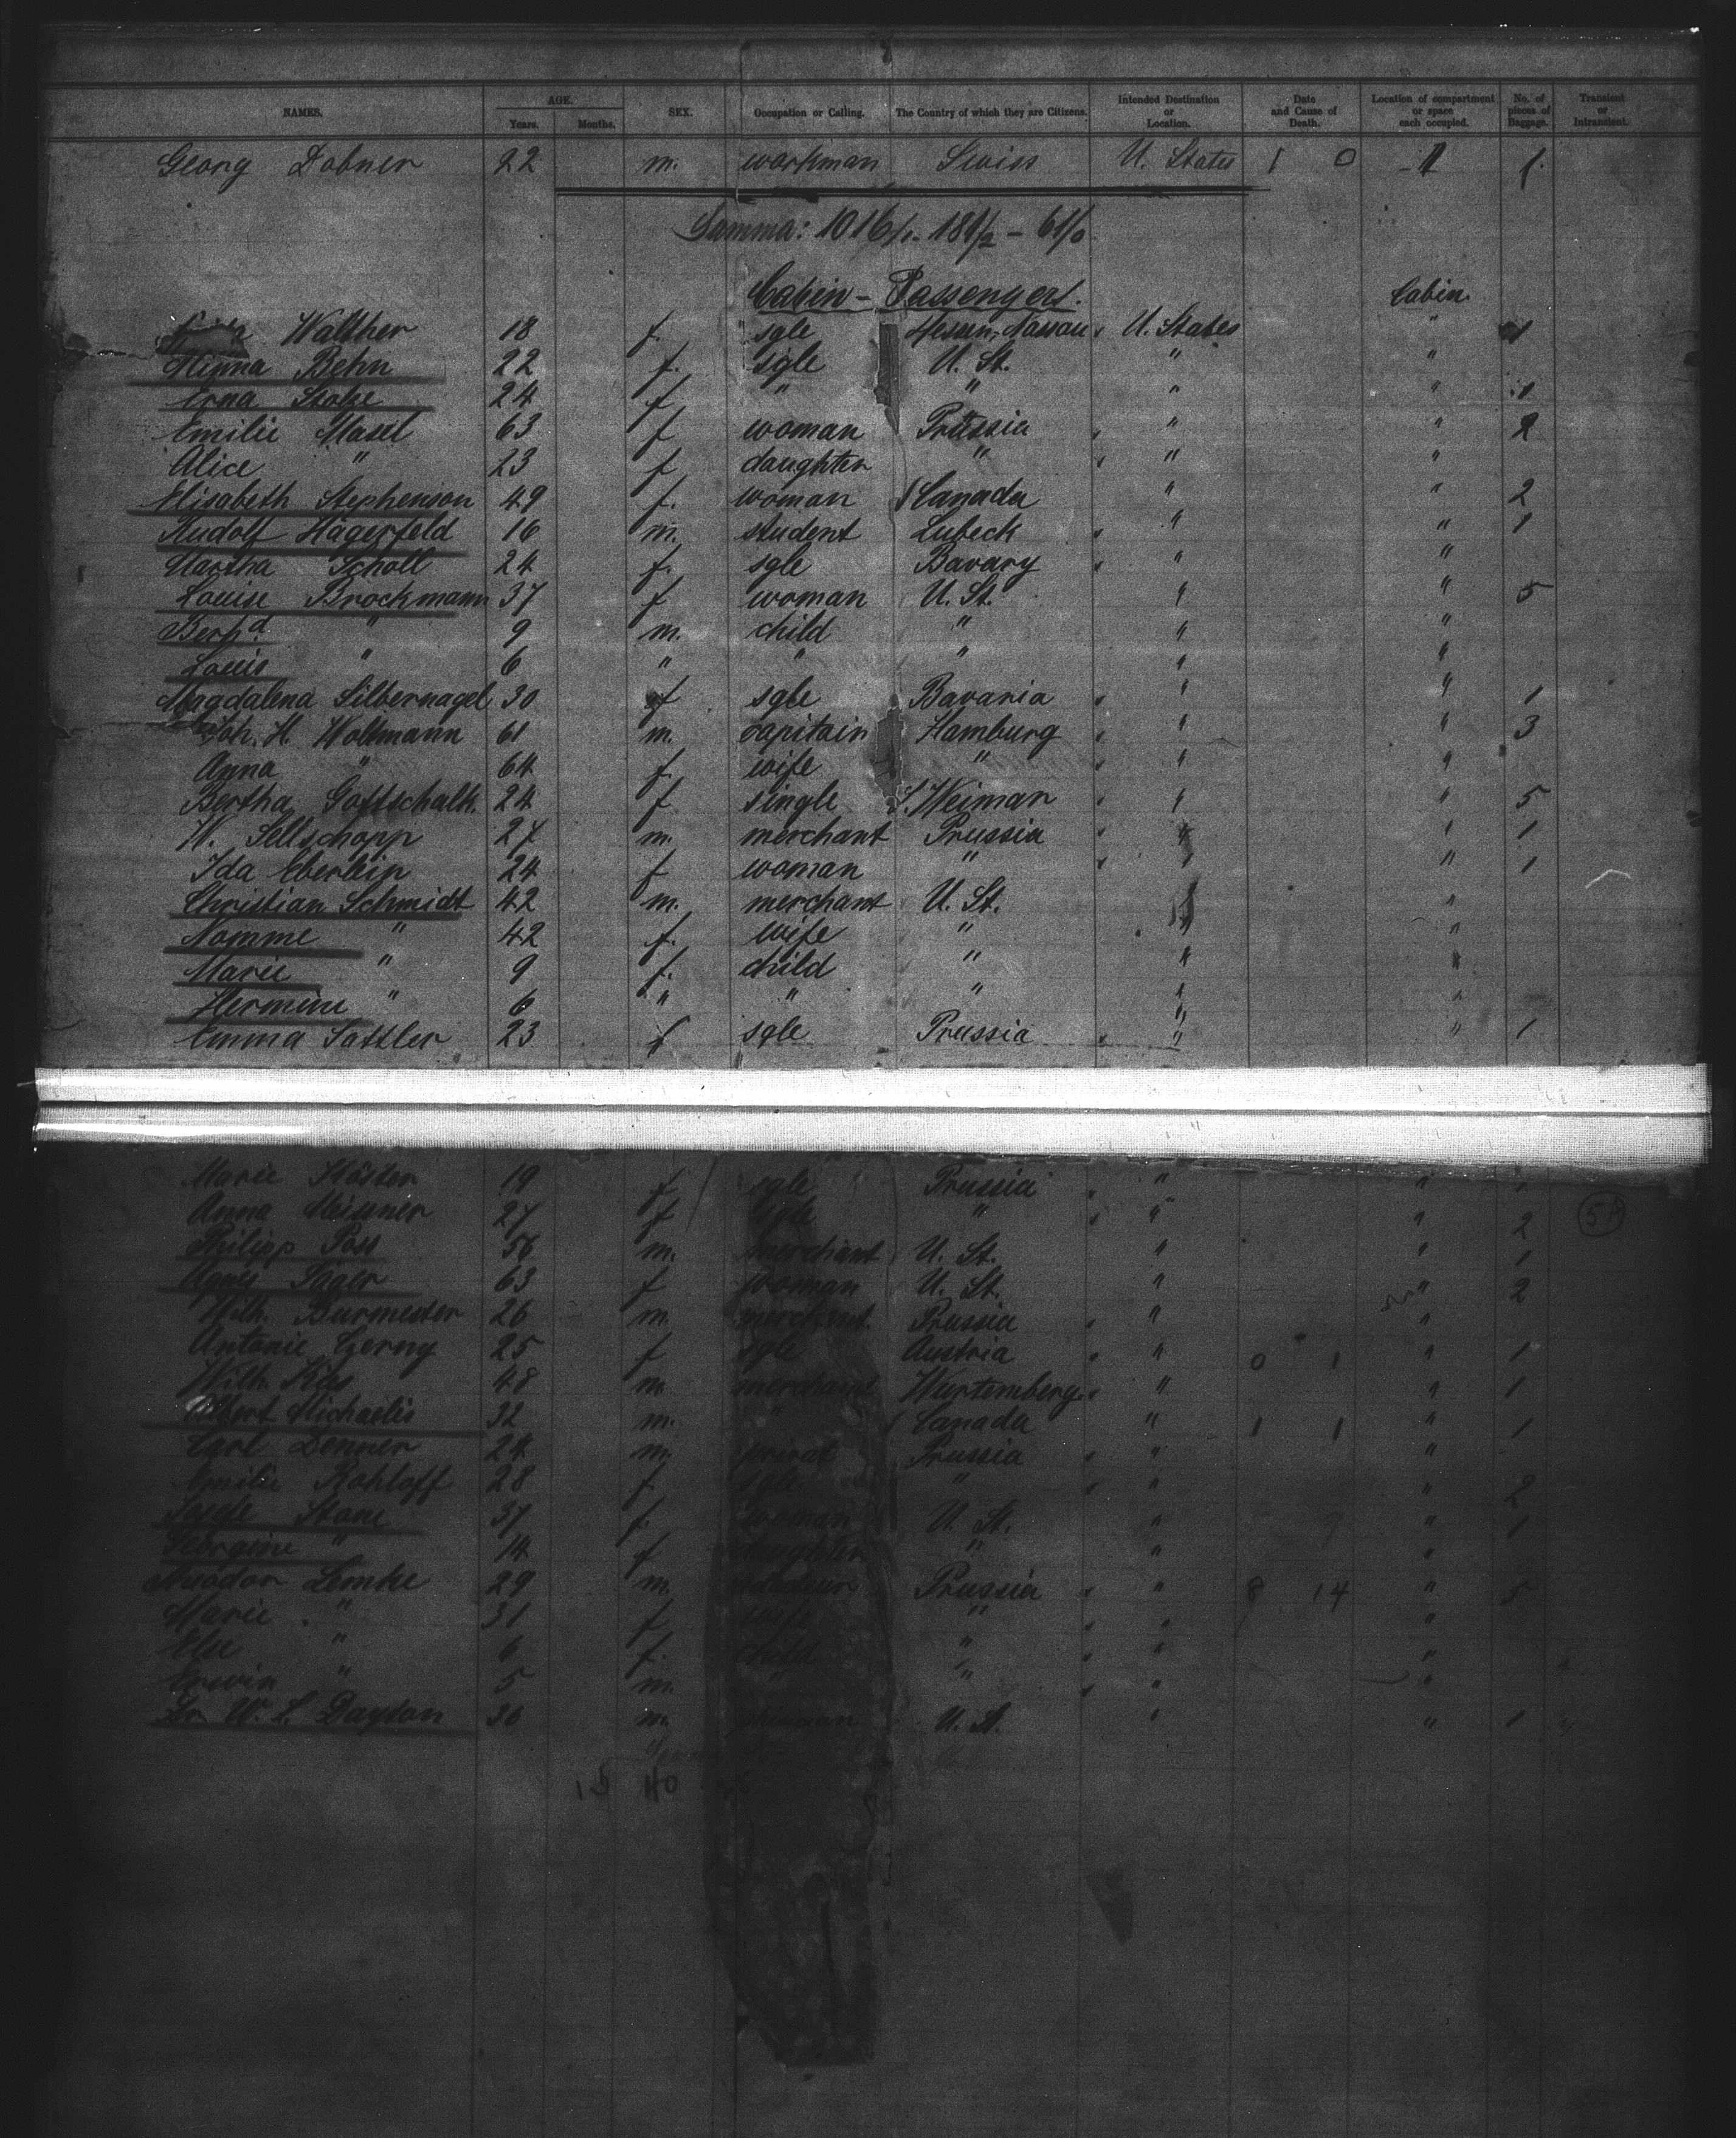 NAMES. AGE. Years. Months. SEX. Occupation or Calling. The Country of which they are Citizens. Intended Destination or Location. Date and Cause of Death. Location of compartment or space each occupied. No. of pieces of Baggage. Transient or Intransient.
Georg Dobner 22 m. workman Swiss U. States 1 0 1 1.
Summa: 1016/1. 181/2 - 61/0
Cabin - Passengers. Cabin.
Walther 18 f. sgle Hessen-Nassau U. States " 1
Minna Behn 22 f. sgle U. St. " "
Erna Stake 24 f " " " " 1
Emilie Masel 63 f woman Prussia " " 2
Alice " 23 f daughter " " "
Elisabeth Stephenson 49 f. woman Canada " " 2
Rudolf Hägerfeld 16 m. student Lubeck " " 1
Martha Scholl 24 f. sgle Bavary " "
Louise Brockmann 37 f woman U. St. " " 5
Berhd. " 9 m. child " " "
Louis " 6 " " " " "
Magdalena Silbernagel 30 f sgle Bavaria " " 1
Joh. H. Woltmann 61 m. capitain Hamburg " " 3
Anna " 64 f. wife " " "
Bertha Gottschalk 24 f single S. Weimar " " 5
W. Sellschopp 27 m. merchant Prussia " " 1
Ida Eberlein 24 f woman " " " 1
Christian Schmidt 42 m. merchant U. St. " "
Nomme " 42 f. wife " " "
Marie " 9 f. child " " "
Hermine " 6 " " " " "
Emma Sattler 23 f sgle Prussia " " 1
Marie Köster 19 f sgle Prussia " "
Anna Meisner 27 f sgle " " " 2
5A
Philipp Poss 56 m. merchant U. St. " " 1
Agnes Sager 63 f woman U. St. " " 2
Wilh. Burmester 26 m. merchant Prussia " "
Antonie Czerny 25 f sgle Austria " 0 1 " 1
Wilh. 48 m. merchant Wurtemberg " " 1
Albert Michaelis 32 m. " Canada " 1 1 " 1
Carl Denner 24 m. privat Prussia " "
Emilie Rohloff 28 f. sgle " " " 2
Stone 37 f. woman U. St. " " 1
Georgine " 14 f daughter " " "
Theodor Lemke 29 m. Prussia " 8 14 " 5
Marie " 31 f wife " " "
Else " 6 f. child " " "
Erwin " 5 m. " " "
Dr. W. L. Dayton 30 m. U. St. " " 1
15 40